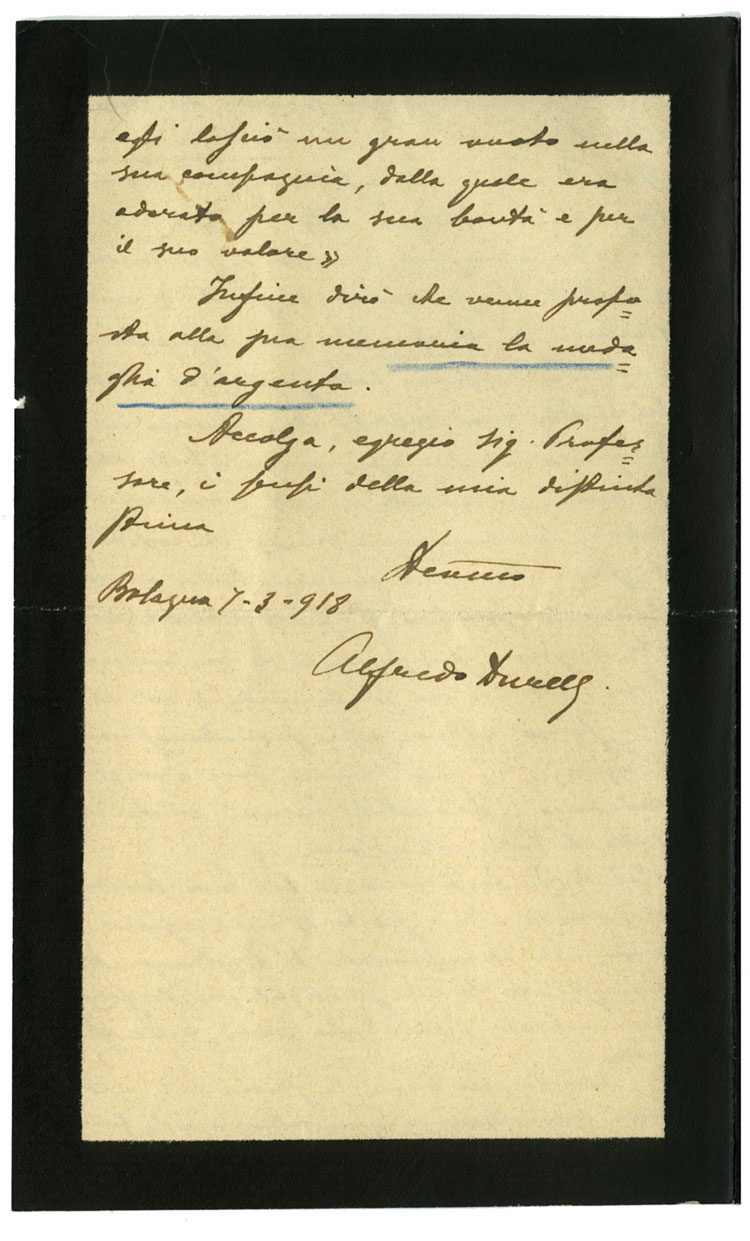 egli lasciò un gran vuoto nella
sua compagnia, dalla quale era
adorato per la sua bontà e per
il suo valore»
Infine dirò che venne propo=
sta alla sua memoria la meda=
glia d'argento.
Accolga, egregio Sig. Profes=
sore, i sensi della mia distinta
stima
Devmo
Bologna 7-3-918
Alfredo